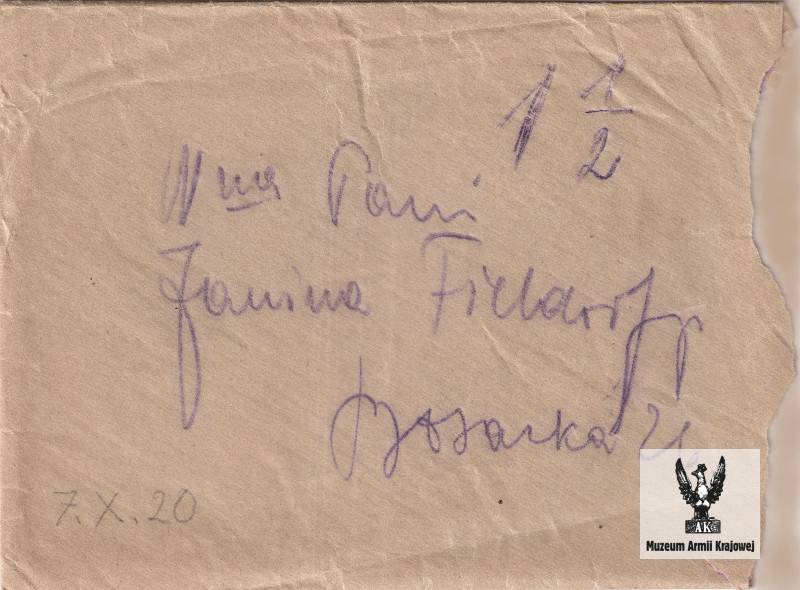 1 1/2
Wna Pani
Janina Fieldorff
Bosacka
7.X.20
AK
Muzeum Armii Krajowej